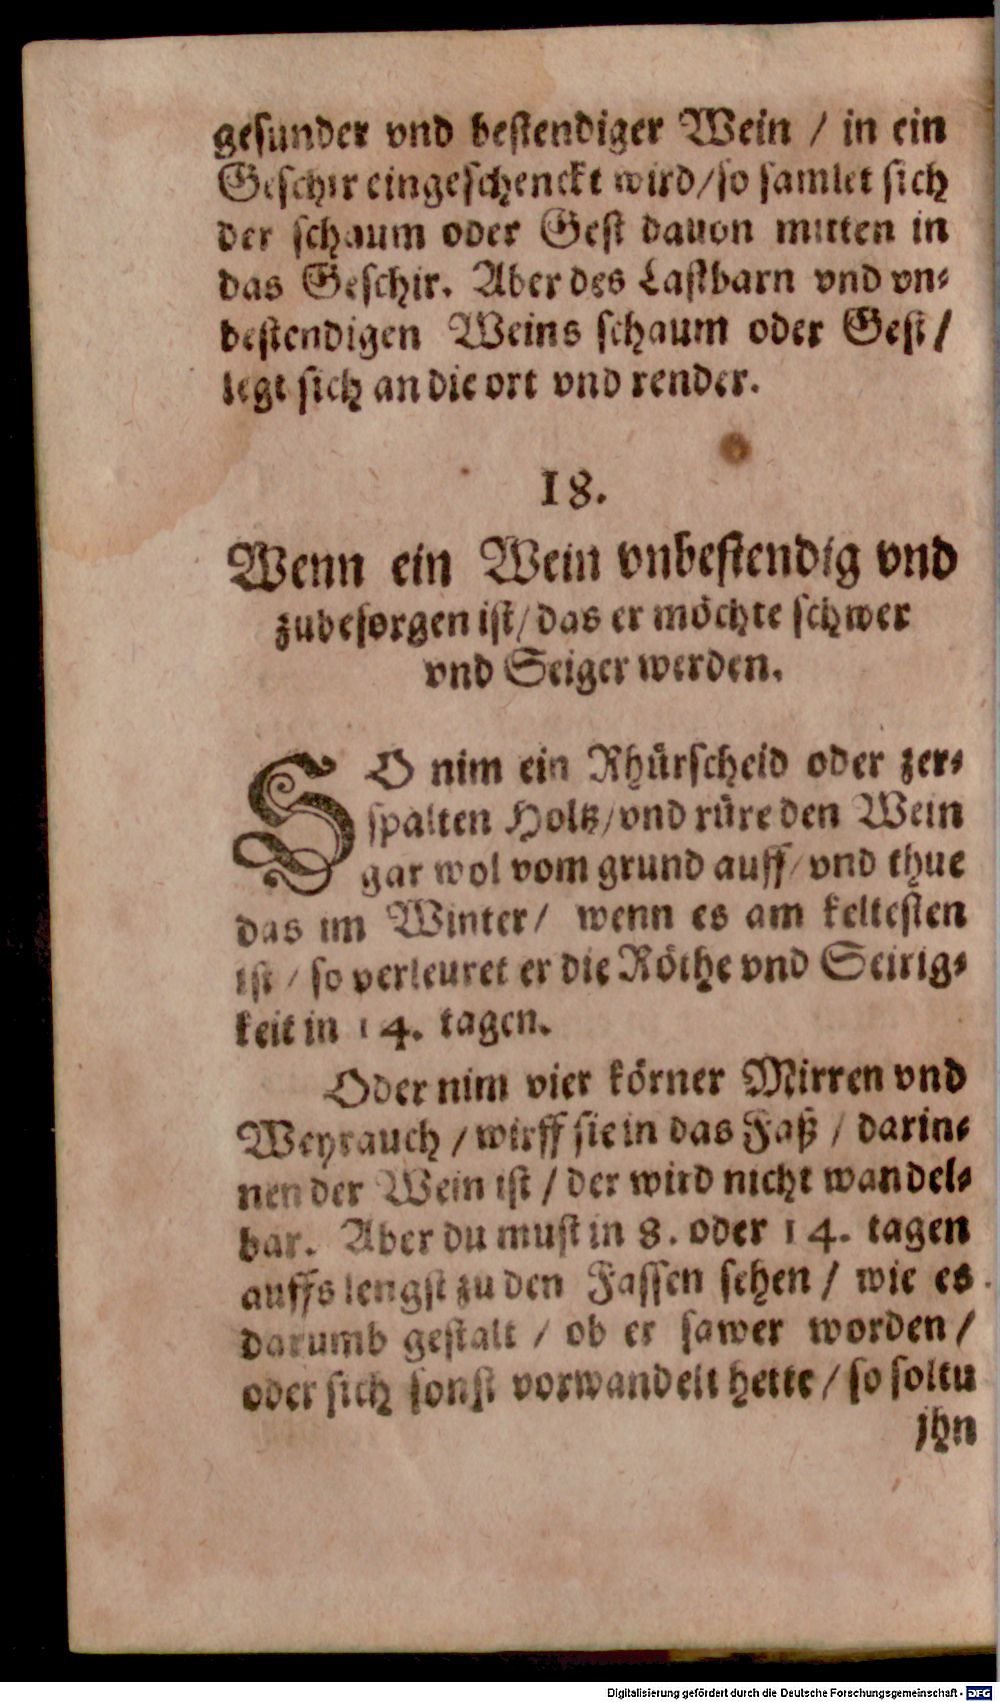 gesunder vnd bestendiger Wein / in ein
Geschir eingeschenckt wird/so samlet sich
der schaum oder Gest dauon mitten in
das Geschir. Aber des Lastbarn vnd vn⸗
bestendigen Weins schaum oder Gest/
legt sich an die ort vnd render.
18.
Wenn ein Wein vnbestendig vnd
zubesorgen ist/das er möchte schwer
vnd Seiger werden.
SO nim ein Rhürscheid oder zer⸗
spalten Holtz/vnd rüre den Wein
gar wol vom grund auff/vnd thue
das im Winter/ wenn es am keltesten
ist / so verleuret er die Röthe vnd Seirig⸗
keit in 14. tagen.
Oder nim vier körner Mirren vnd
Weyrauch /wirff sie in das Faß / darin⸗
nen der Wein ist / der wird nicht wandel⸗
bar. Aber du must in 8. oder 14. tagen
auffs lengst zu den Fassen sehen / wie es
darumb gestalt / ob er sawer worden /
oder sich sonst vorwandelt hette / so soltu
jhn
Digitalisierung gefördert durch die Deutsche Forschungsgemeinschaft - DFG